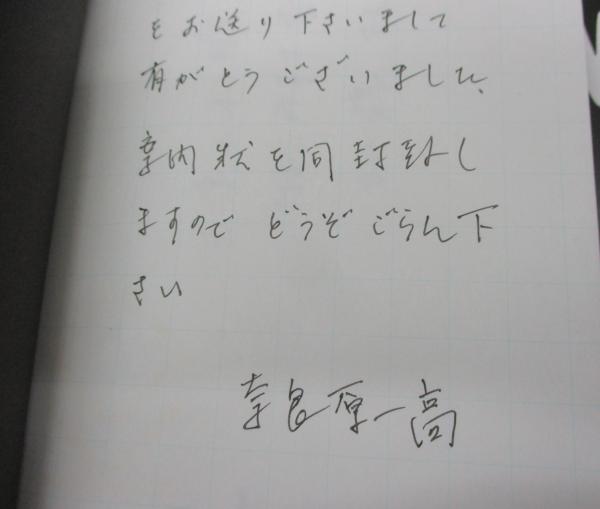 をお送り下さいまして
有がとうございました、
案内状を同封致し
ますので どうぞ ごらん下
さい
奈良原一高